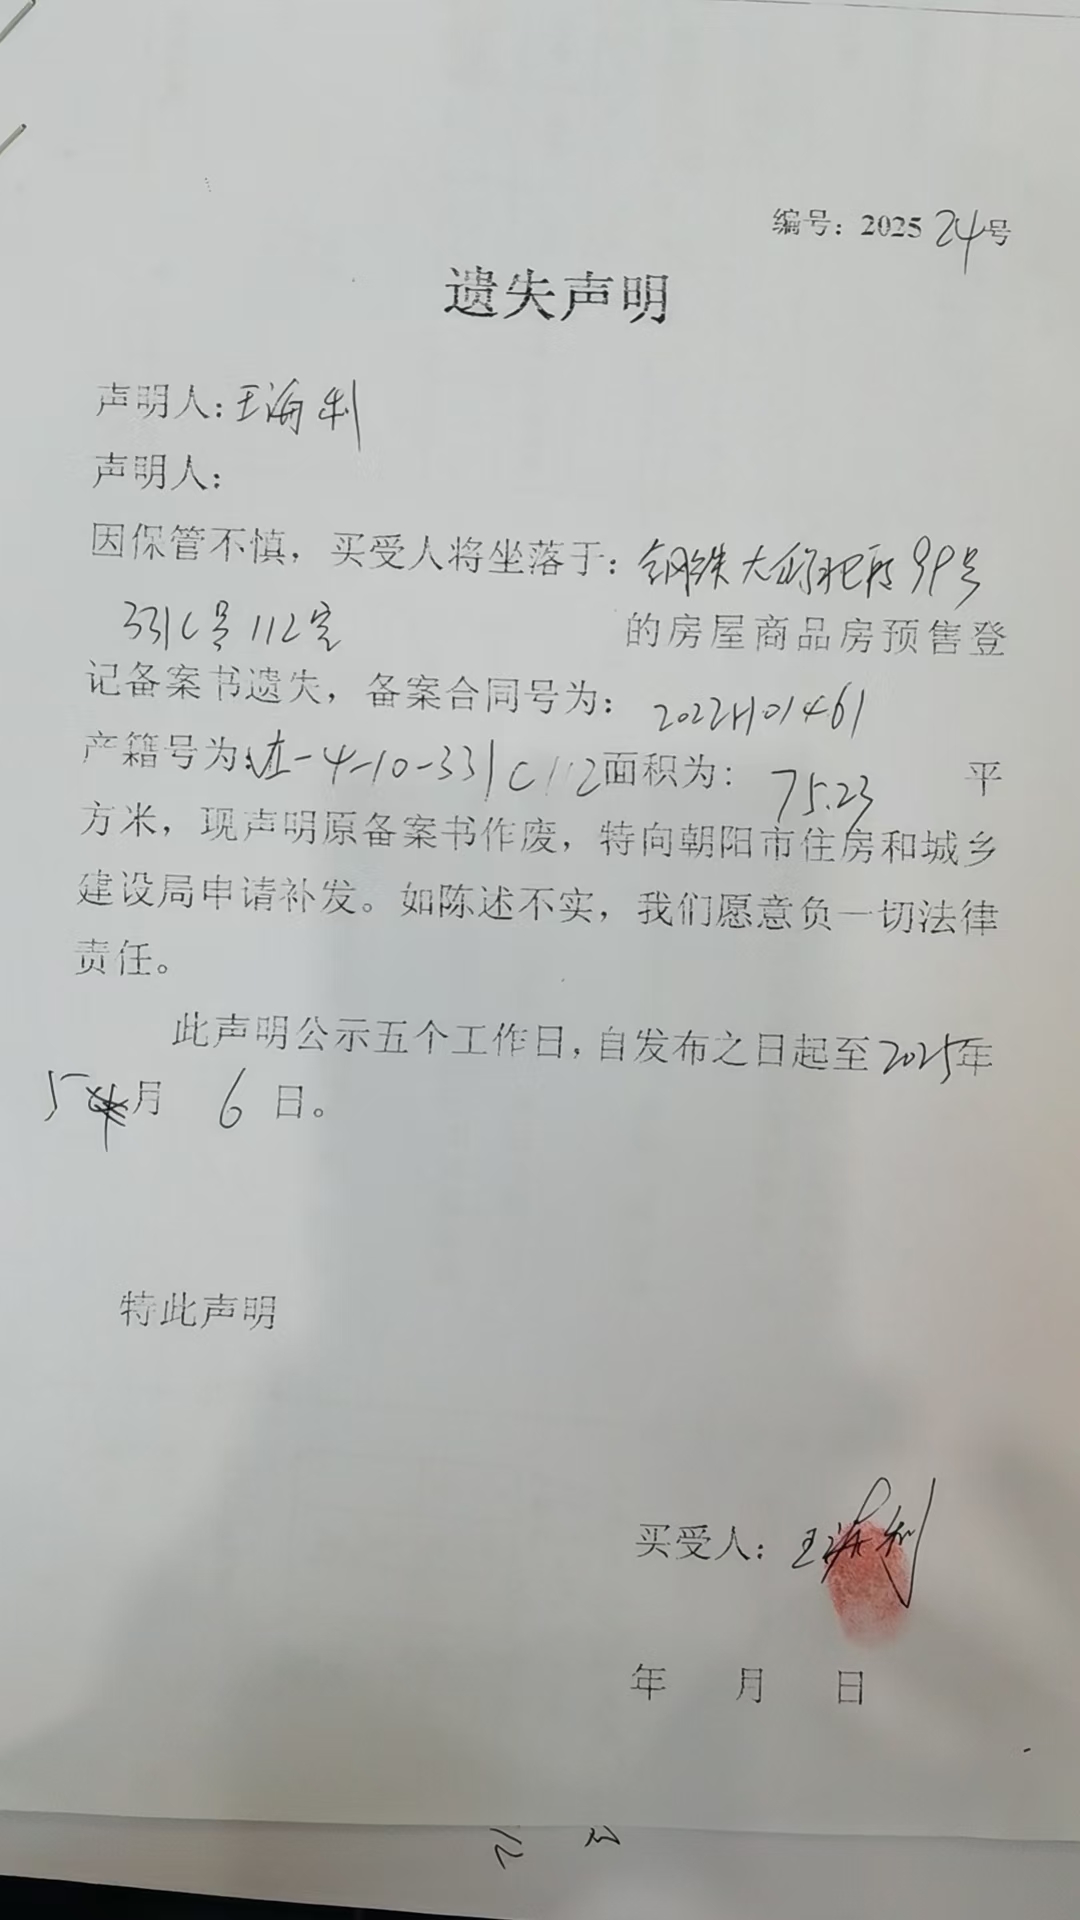 编号：2025 24号
遗失声明
声明人：王海利
声明人：
因保管不慎，买受人将坐落于：钢铁大街 99号
331C号112室 的房屋商品房预售登
记备案书遗失，备案合同号为：2022H01461
产籍号为：-4-10-331C112面积为：75.23 平
方米，现声明原备案书作废，特向朝阳市住房和城乡
建设局申请补发。如陈述不实，我们愿意负一切法律
责任。
此声明公示五个工作日，自发布之日起至2025年
5月 6日。
特此声明
买受人：王海利
年 月 日